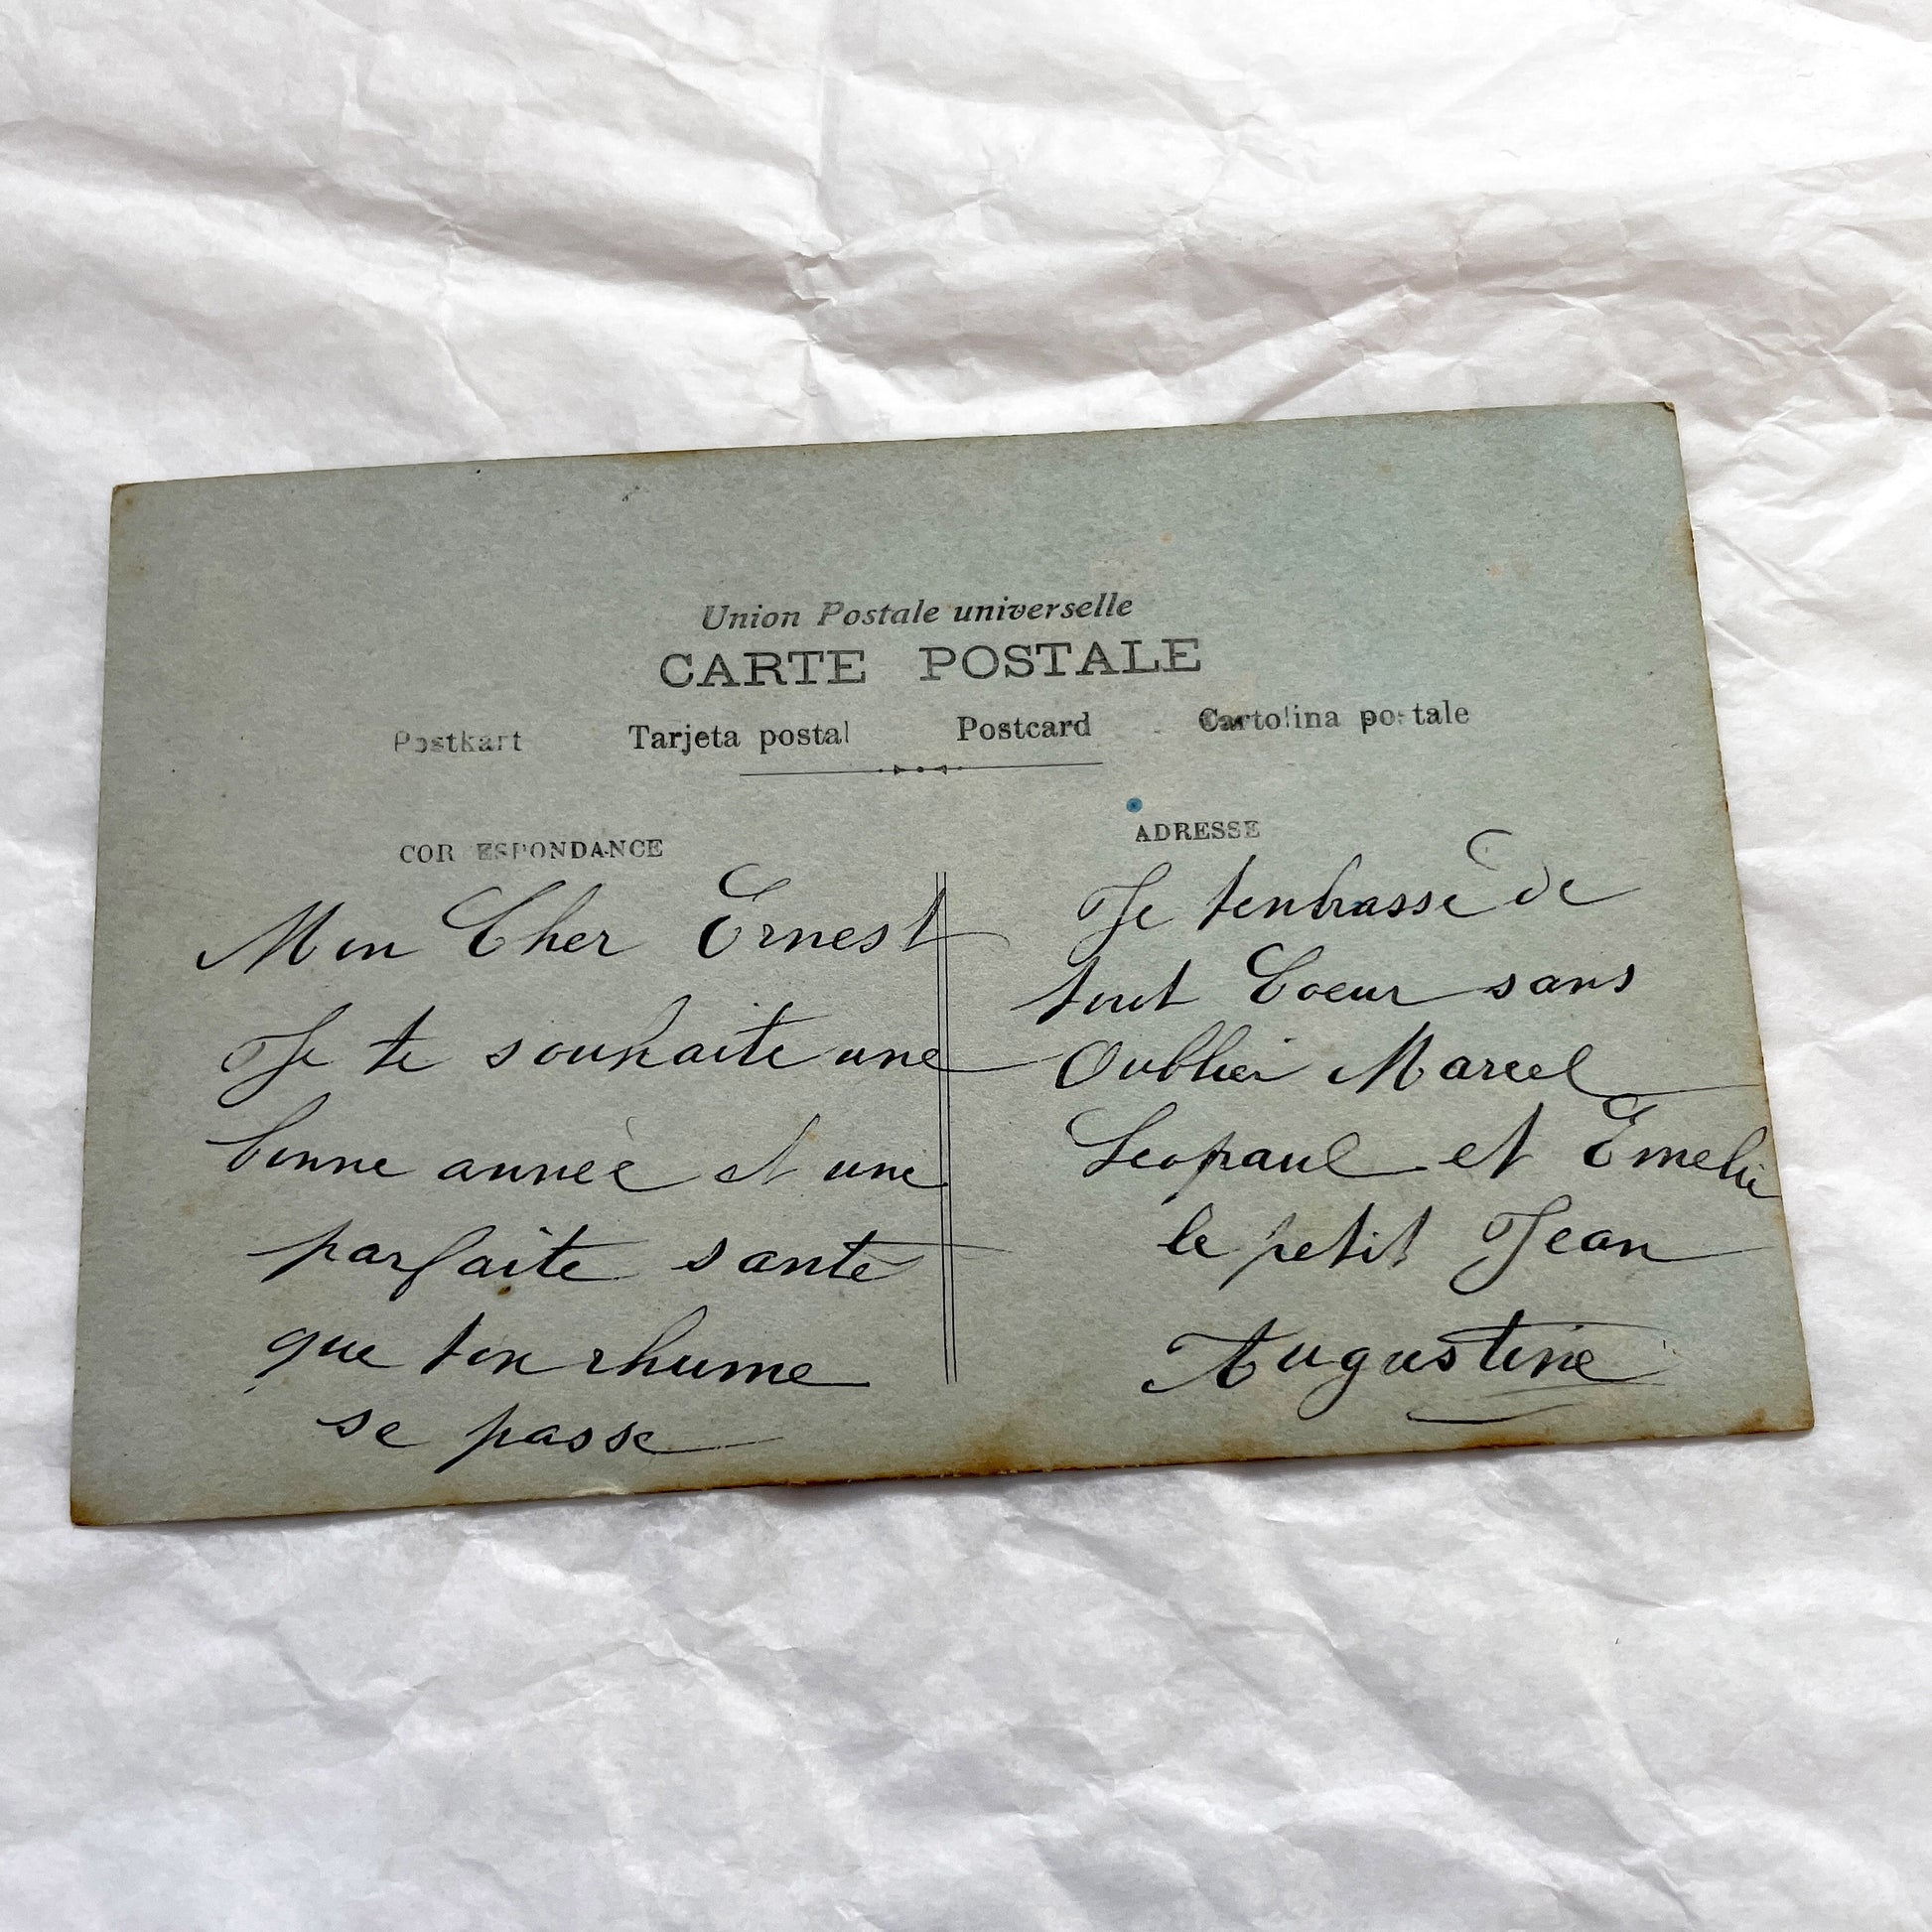 Union Postale universelle
CARTE POSTALE
Postkart Tarjeta postal Postcard Cartolina postale
CORRESPONDANCE
Mon Cher Ernest
Je te souhaite une
bonne année et une
parfaite santé
que ton rhume
se passe
ADRESSE
Je tenbrasse de
tout Coeur sans
Oublier Marcel
Leopaul et Emelie
le petit Jean
Augustine